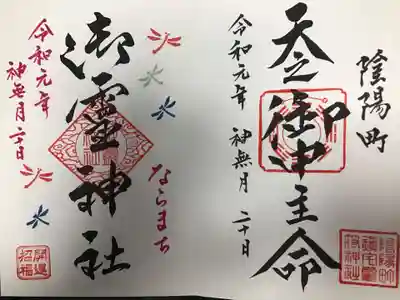 陰陽町
天之御中主命
令和元年 神無月 二十日
ならまち
御霊神社
令和元年
神無月二十日
開運
招福
陰陽町
鎮宅霊
符神社